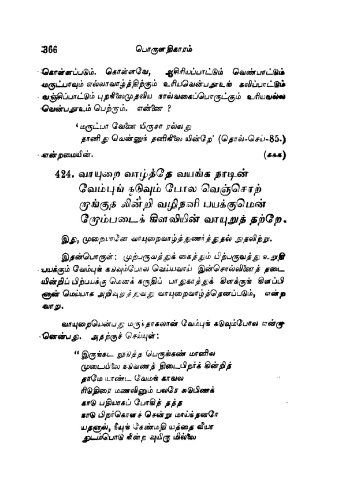 366 பொருளதிகாரம்
கொள்ளப்படும். கொள்ளவே, ஆசிரியப்பாட்டும் வெண்பாட்டும்
மருட்பாவும் எல்லாவாழ்த்திற்கும் உரியவென்பதூஉம் கலிப்பாட்டும்
வஞ்சிப்பாட்டும் புறநிலைமுதலிய நால்வகைப்பொருட்கும் உரியவல்ல
வென்பதூஉம் பெற்றும். என்னை ?
'மருட்பா வேனை யிருசா ரல்லது
தானிது வென்னுந் தனிநிலை யின்றே' (தொல்-செய்-85.)
என்றமையின். (௧௧௧)
424. வாயுறை வாழ்த்தே வயங்க நாடின்
வேம்புங் கடுவும் போல வெஞ்சொற்
றாங்குத லின்றி வழிநனி பயக்குமென்
றோம்படைக் கிளவியின் வாயுறுத் தற்றே.
இது, முறையானே வாயுறைவாழ்த்துணர்த்துதல் நுதலிற்று.
இதன்பொருள்: முற்பருவத்துக் கைத்தும் பிற்பருவத்து உறுதி
பயக்கும் வேம்புங் கடுவும்போல வெய்யவாய் இன்சொல்லினைத் தடை
யின்றிப் பிற்பயக்கு மெனக் கருதிப் பாதுகாத்துக் கிளக்குங் கிளப்பி
னான் மெய்யாக அறிவுறுத்துவது வாயுறைவாழ்த்தெனப்படும், என்ற
வாறு.
வாயுறையென்பது மருந்தாகலான் வேம்புங் கடுவும்போல என்று
னென்பது. அதற்குச் செய்யுள்:
"இருங்கட லுடுத்த பெருங்கண் மாநில
முடையிலை நடுவண திடைபிறர்க் கின்றித்
தாமே யாண்ட வேமங் காவல
ரிடுதிரை மணலினும் பலரே சுடுபிணக்
காடு பதியாகப் போகித் தத்த
நாடு பிறர்கொளச் சென்று மாய்ந்தனரே
யதனால், நீயுங் கேண்மதி யத்தை வீயா
துடம்பொடு நின்ற வுயிரு மில்லை